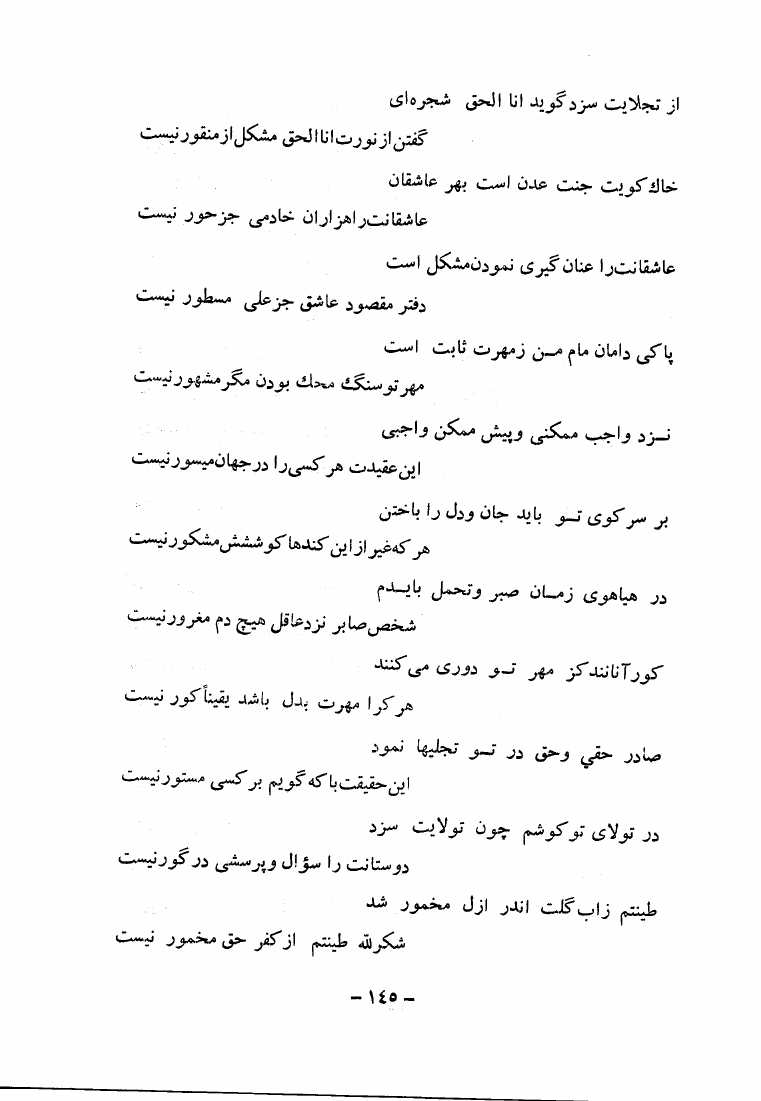 از تجلایت سزد گوید انا الحق شجره‌ای
گفتن از نورت انا الحق مشکل از منقور نیست
خاك کویت جنت عدن است بهر عاشقان
عاشقانت را هزاران خادمی جز حور نیست
عاشقانت را عنان گیری نمودن مشکل است
دفتر مقصود عاشق جز علی مسطور نیست
پاکی دامان مام من زمهرت ثابت است
مهر تو سنگ محك بودن مگر مشهور نیست
نزد واجب ممکنی وپیش ممکن واجبی
این عقیدت هر کسی را در جهان میسور نیست
بر سر کوی تو باید جان ودل را باختن
هر که غیر از این کندها کوشش مشکور نیست
در هیاهوی زمان صبر وتحمل بایدم
شخص صابر نزد عاقل هیچ دم مغرور نیست
کور آنانند کز مهر تو دوری می کنند
هر کرا مهرت بدل باشد یقیناً کور نیست
صادر حقي وحق در تو تجلیها نمود
این حقیقت با که گویم بر کسی مستور نیست
در تولای تو کوشم چون تولایت سزد
دوستانت را سؤال وپرسشی در گور نیست
طینتم زاب گلت اندر ازل مخمور شد
شکر لله طینتم از کفر حق مخمور نیست
- ١٤٥ -